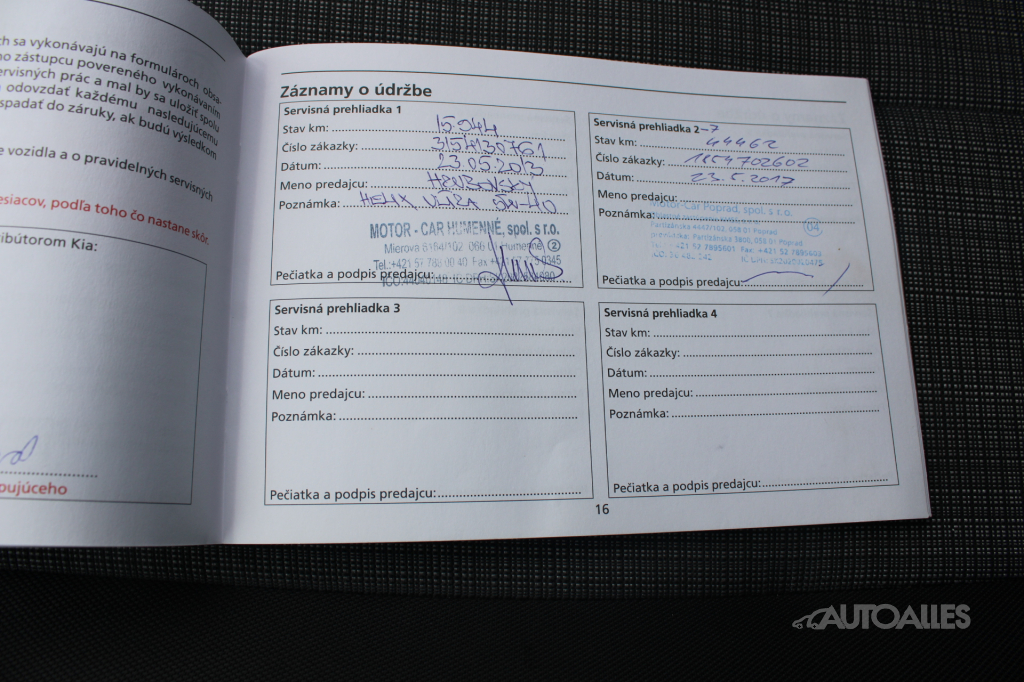 ch sa vykonávajú na formulároch obsa-
ho zástupcu povereného vykonávaním
ervisných prác a mal by sa uložiť spolu
odovzdať každému nasledujúcemu
spadať do záruky, ak budú výsledkom
e vozidla a o pravidelných servisných
esiacov, podľa toho čo nastane skôr.
ribútorom Kia:
pujúceho
Záznamy o údržbe
Servisná prehliadka 1
Stav km: 15.044
Číslo zákazky: 3154130761
Dátum: 23.05.2013
Meno predajcu:
Poznámka: HELIX ULTRA 5W-40
MOTOR - CAR HUMENNÉ, spol. s r.o.
Mierova 6164/102 066 01 Humenné 2
Pečiatka a podpis predajcu:
Servisná prehliadka 2-7
Stav km: 44462
Číslo zákazky: 1854702602
Dátum: 23.5.2017
Meno predajcu:
Motor-Car Poprad, spol. s r.o.
Poznámka: 04
Partizánska 058 01 Poprad
Partizánska 3800, 058 01 Poprad
Pečiatka a podpis predajcu:
Servisná prehliadka 3
Stav km:
Číslo zákazky:
Dátum:
Meno predajcu:
Poznámka:
Pečiatka a podpis predajcu:
Servisná prehliadka 4
Stav km:
Číslo zákazky:
Dátum:
Meno predajcu:
Poznámka:
Pečiatka a podpis predajcu:
16
AUTOALLES